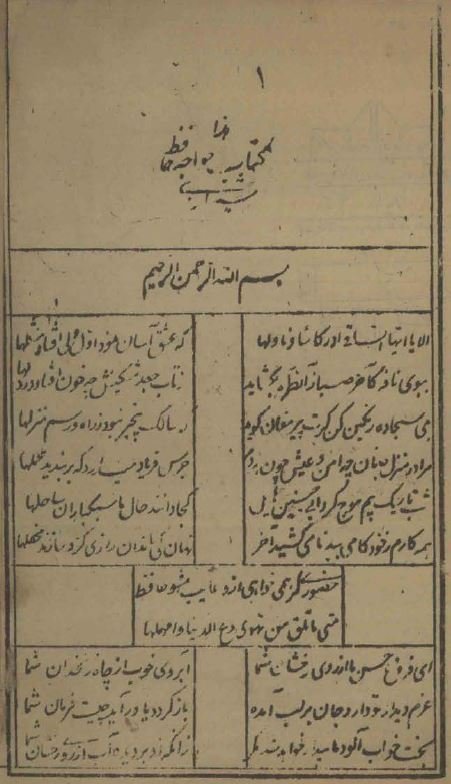 ۱
هذا
کتاب خواجه حافظ
شیرازی
بسم الله الرحمن الرحیم
الا یا ایها الساقی ادر کاسا و ناولها
که عشق آسان نمود اول ولی افتاد مشکلها
ببوی نافه کآخر صبا زان طره بگشاید
ز تاب جعد مشکینش چه خون افتاد در دلها
بمی سجاده رنگین کن گرت پیر مغان گوید
که سالک بیخبر نبود ز راه و رسم منزلها
مرا در منزل جانان چه امن و عیش چون هر دم
جرس فریاد میدارد که بربندید محملها
شب تاریک و بیم موج و گردابی چنین هایل
کجا دانند حال ما سبکباران ساحلها
همه کارم ز خود کامی ببدنامی کشید آخر
نهان کی ماند آن رازی کزو سازند محفلها
حضوری گر همی خواهی ازو غایب مشو حافظ
متی ما تلق من تهوی دع الدنیا و اهملها
ای فروغ حسن ماه از روی رخشان شما
آبروی خوبی از چاه زنخدان شما
عزم دیدار تو دارد جان بر لب آمده
باز گردد یا در آید چیست فرمان شما
بخت خواب آلود ما بیدار خواهد شد مگر
زانکه زد بر دیده آب روی رخشان شما